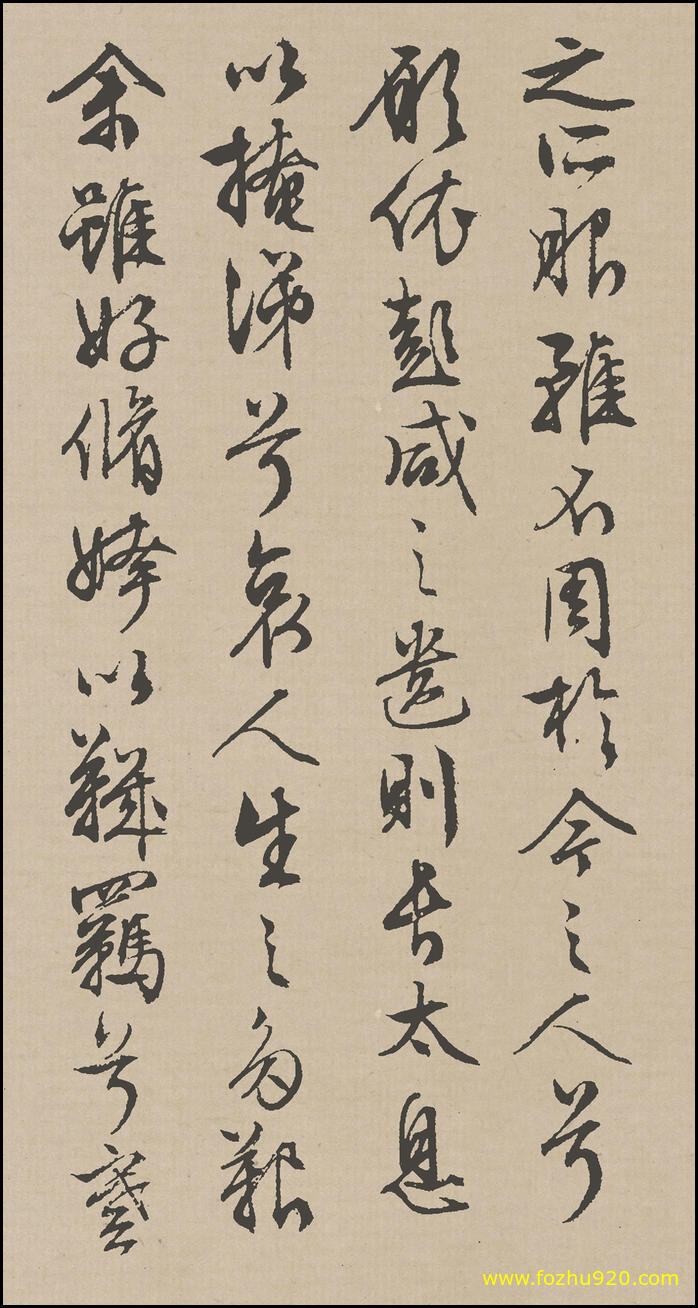 之所服雖不周於今之人兮
願依彭咸之遺則長太息
以掩涕兮哀人生之多艱
余雖好脩姱以鞿羈兮謇
www.fozhu920.com